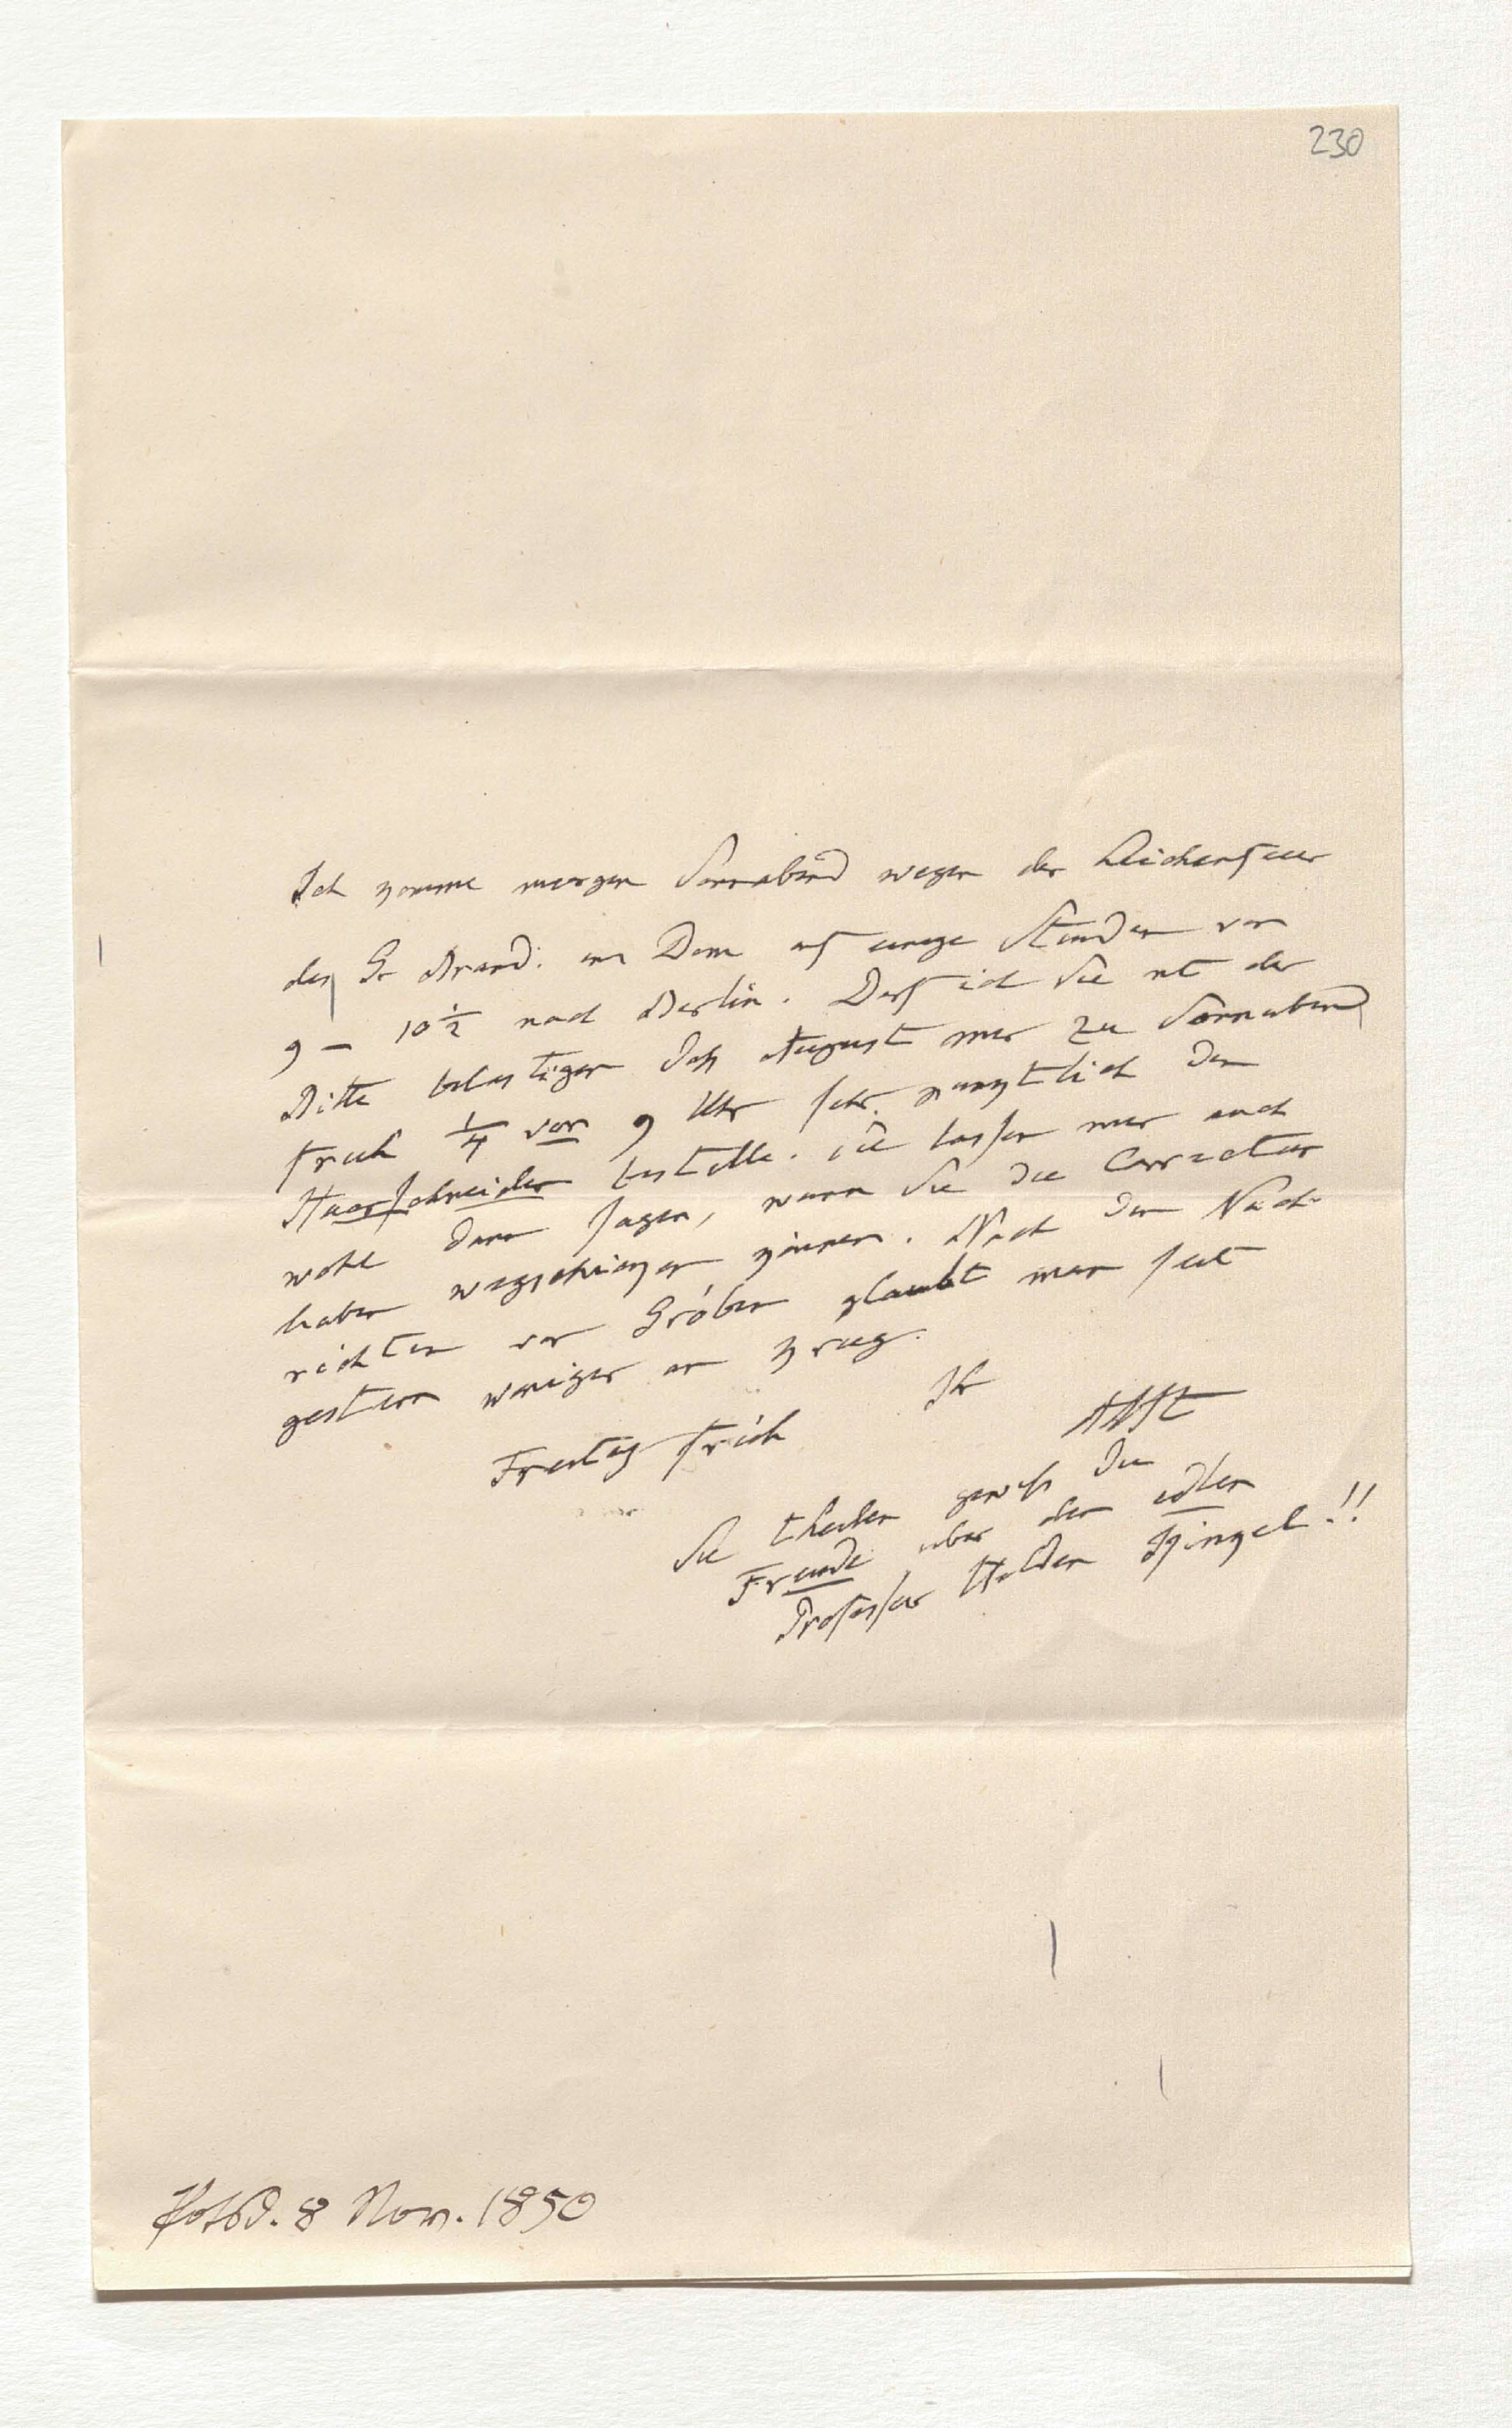 230
Ich komme morgen Sonnabend wegen der Leichenfeier
des Gr Brand: im Dom auf einige Stunden von
9 – 10 1/2 nach Berlin. Darf ich Sie mit der
Bitte belästigen daß August mir zu Sonnabend
früh 1/4 vor 9 Uhr sehr pünktlich den
Haarschneider bestelle. Sie lassen mir auch
wohl dann sagen, wann Sie die Correctur
haben wegschicken können. Nach den Nach-
richten von Gröben glaubt man seit
gestern weniger an Krieg.
Ihr
AHt
Freitag früh
Sie theilen gewiß die
Freude über den edlen
Professor Helden Kinkel!!
Potsd. 8 Nov. 1850